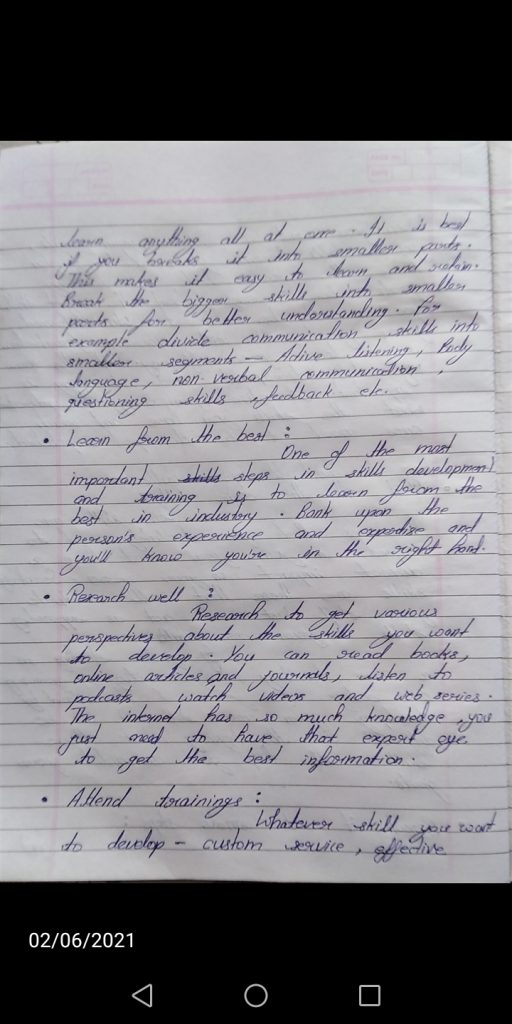 learn anything all at one. It is best
if you breaks it into smaller parts.
This makes it easy to learn and retain.
Break the bigger skills into smaller
parts for better understanding. For
example divide communication skills into
smaller segments - Active listening, Body
language, non-verbal communication,
questioning skills, feedback etc.
• Learn from the best :
One of the most
important skills steps in skills development
and training is to learn from the
best in industry. Bank upon the
person's experience and expertise and
you'll know you're in the right hand.
• Research well :
Research to get various
perspectives about the skills you want
to develop. You can read books,
online articles and journals, listen to
podcasts watch videos and web series.
The internet has so much knowledge, you
just need to have that expert eye
to get the best information.
• Attend trainings :
Whatever skill you want
to develop - custom service, effective
02/06/2021